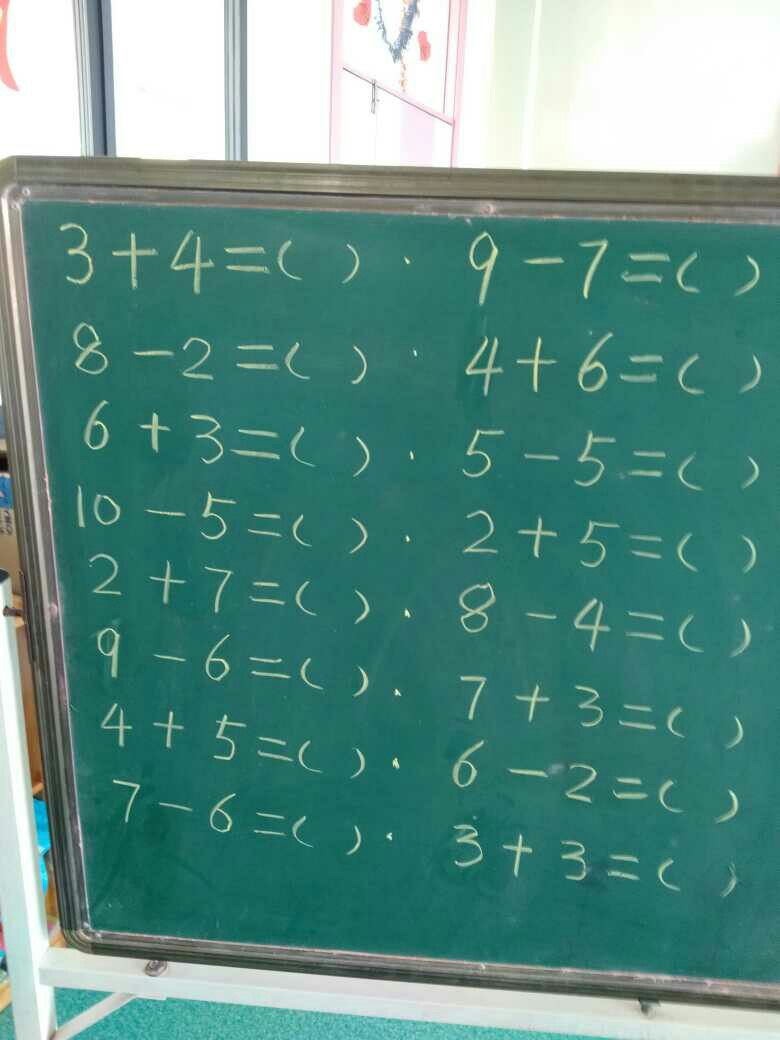 3+4=( ). 9-7=( )
8-2=( ). 4+6=( )
6+3=( ). 5-5=( )
10-5=( ). 2+5=( )
2+7=( ). 8-4=( )
9-6=( ). 7+3=( )
4+5=( ). 6-2=( )
7-6=( ). 3+3=( )